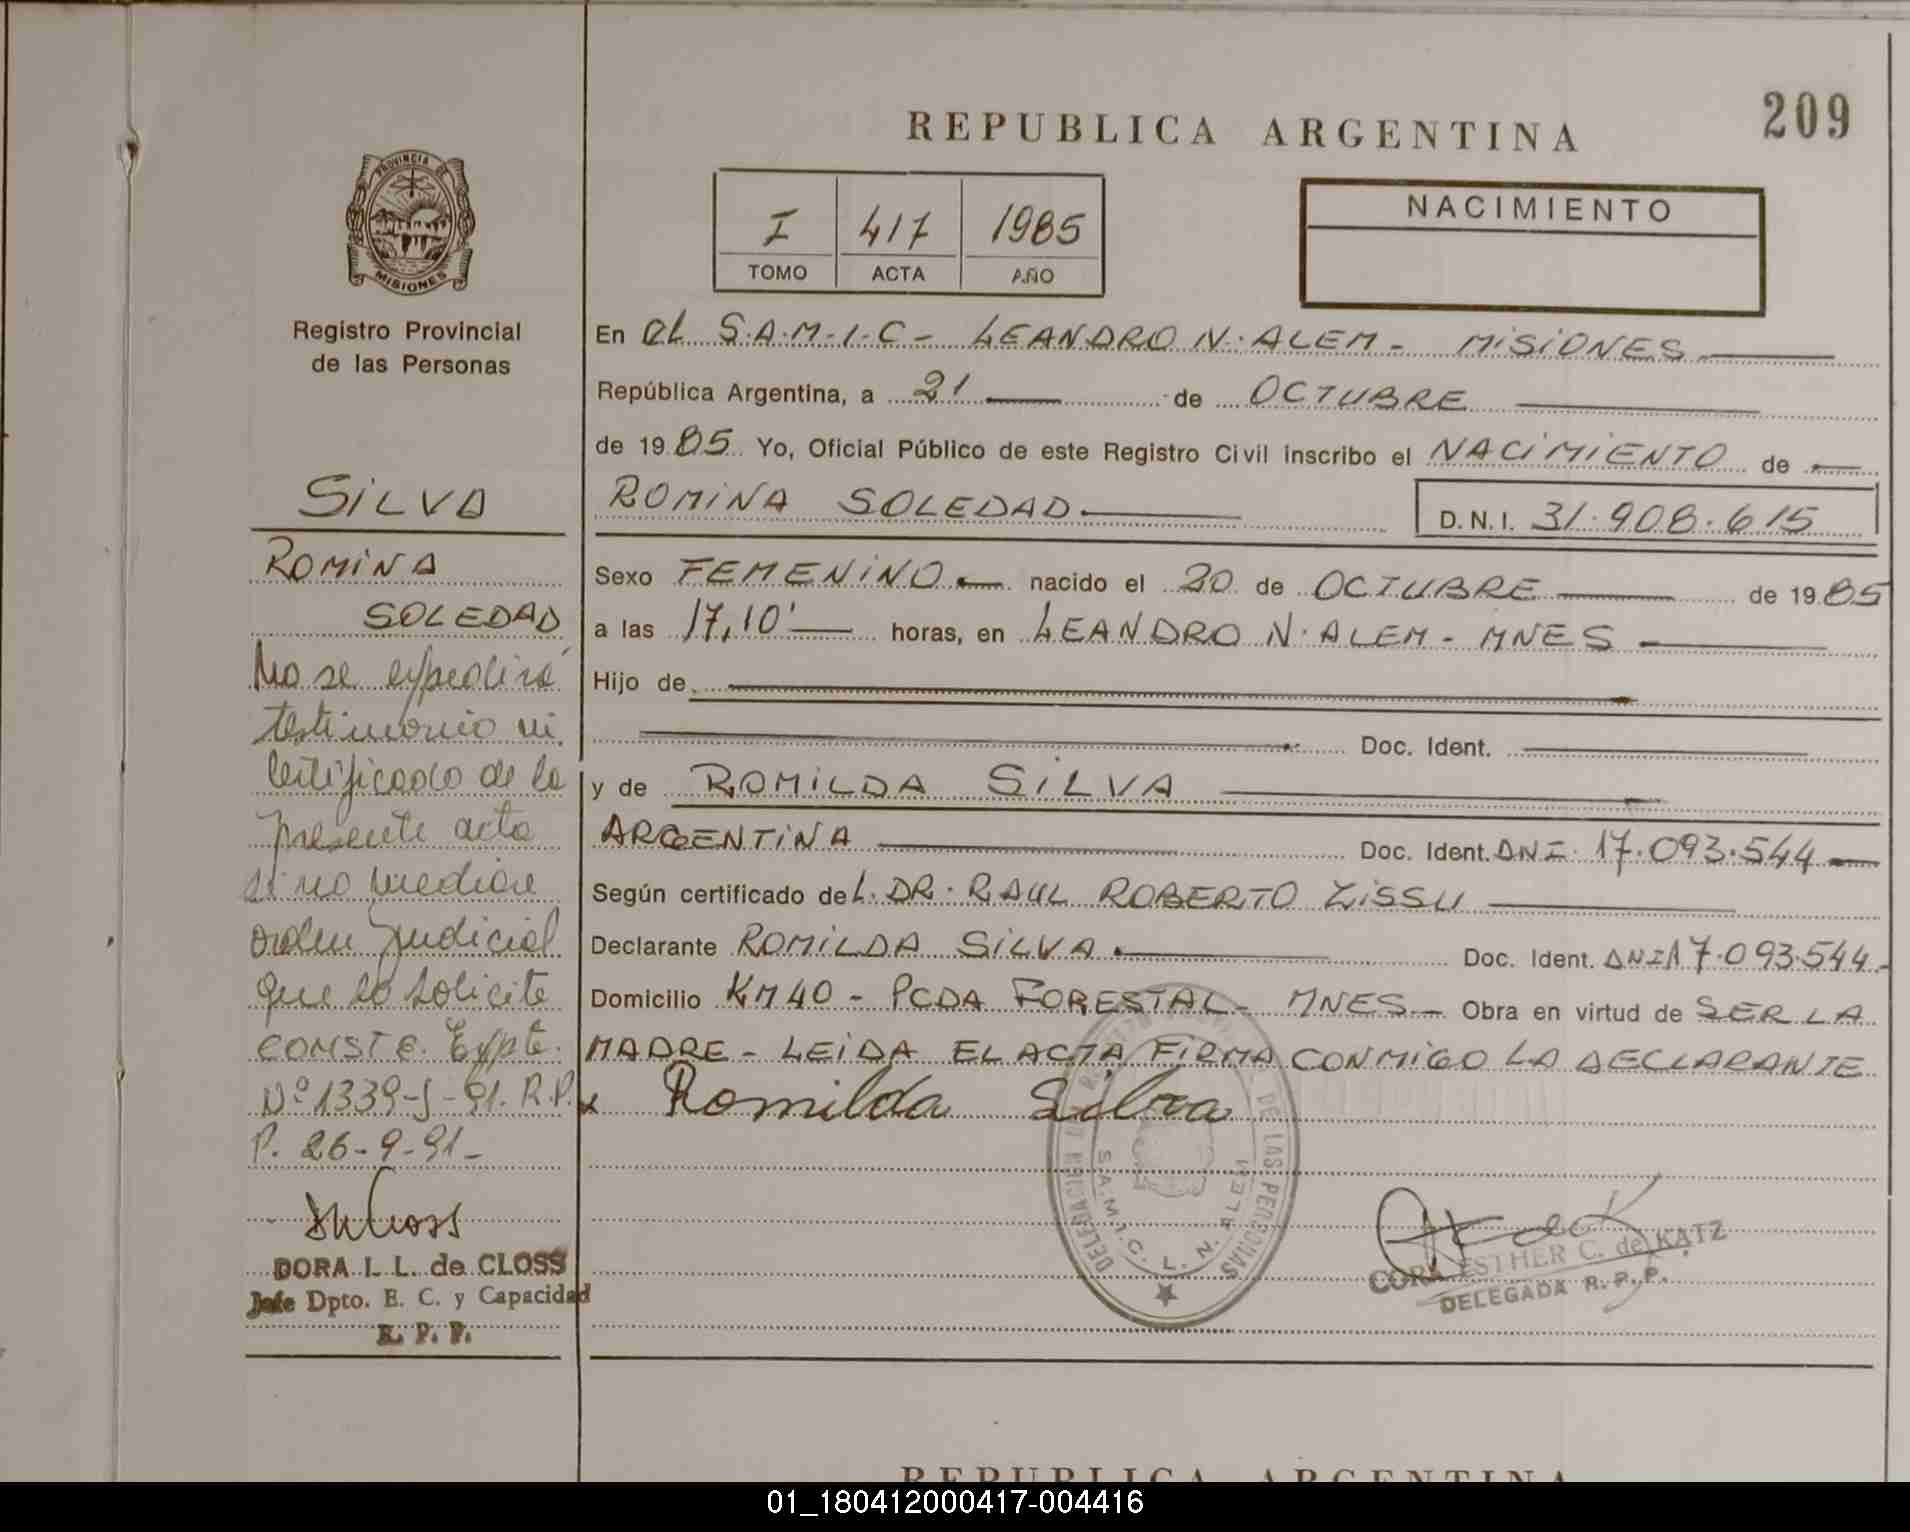 209
REPUBLICA ARGENTINA
PROVINCIA DE
MISIONES
Registro Provincial
de las Personas
I 417 1985
TOMO ACTA AÑO
NACIMIENTO
En el S.A.M.I.C - LEANDRO N. ALEM - MISIONES
República Argentina, a 21 de OCTUBRE
de 1985 Yo, Oficial Público de este Registro Civil inscribo el NACIMIENTO de
ROMINA SOLEDAD D.N.I. 31.908.615
Sexo FEMENINO nacido el 20 de OCTUBRE de 1985
a las 17,10' horas, en LEANDRO N. ALEM - MNES
Hijo de
Doc. Ident.
y de ROMILDA SILVA
ARGENTINA Doc. Ident. DNI. 17.093.544
Según certificado del. DR. RAUL ROBERTO ZISSU
Declarante ROMILDA SILVA. Doc. Ident. DNI 17.093.544
Domicilio KM 40 - PCDA FORESTAL - MNES Obra en virtud de SER LA
MADRE - LEIDA EL ACTA FIRMA CONMIGO LA DECLARANTE
x Romilda Silva
SILVA
ROMINA
SOLEDAD
No se expedirá
testimonio ni
certificado de la
presente acta
si no mediare
orden judicial
que lo solicite
CONSTE. Expte.
Nº 1339-S-91. R.P.
P. 26-9-91-
DORA I. L. de CLOSS
Jefe Dpto. E. C. y Capacidad
R. P. P.
DE LAS PERSONAS
S.A.M.I.C. L. N. ALEM
CORA ESTHER C. de KATZ
DELEGADA R. P. P.
REPUBLICA ARGENTINA
01_180412000417-004416